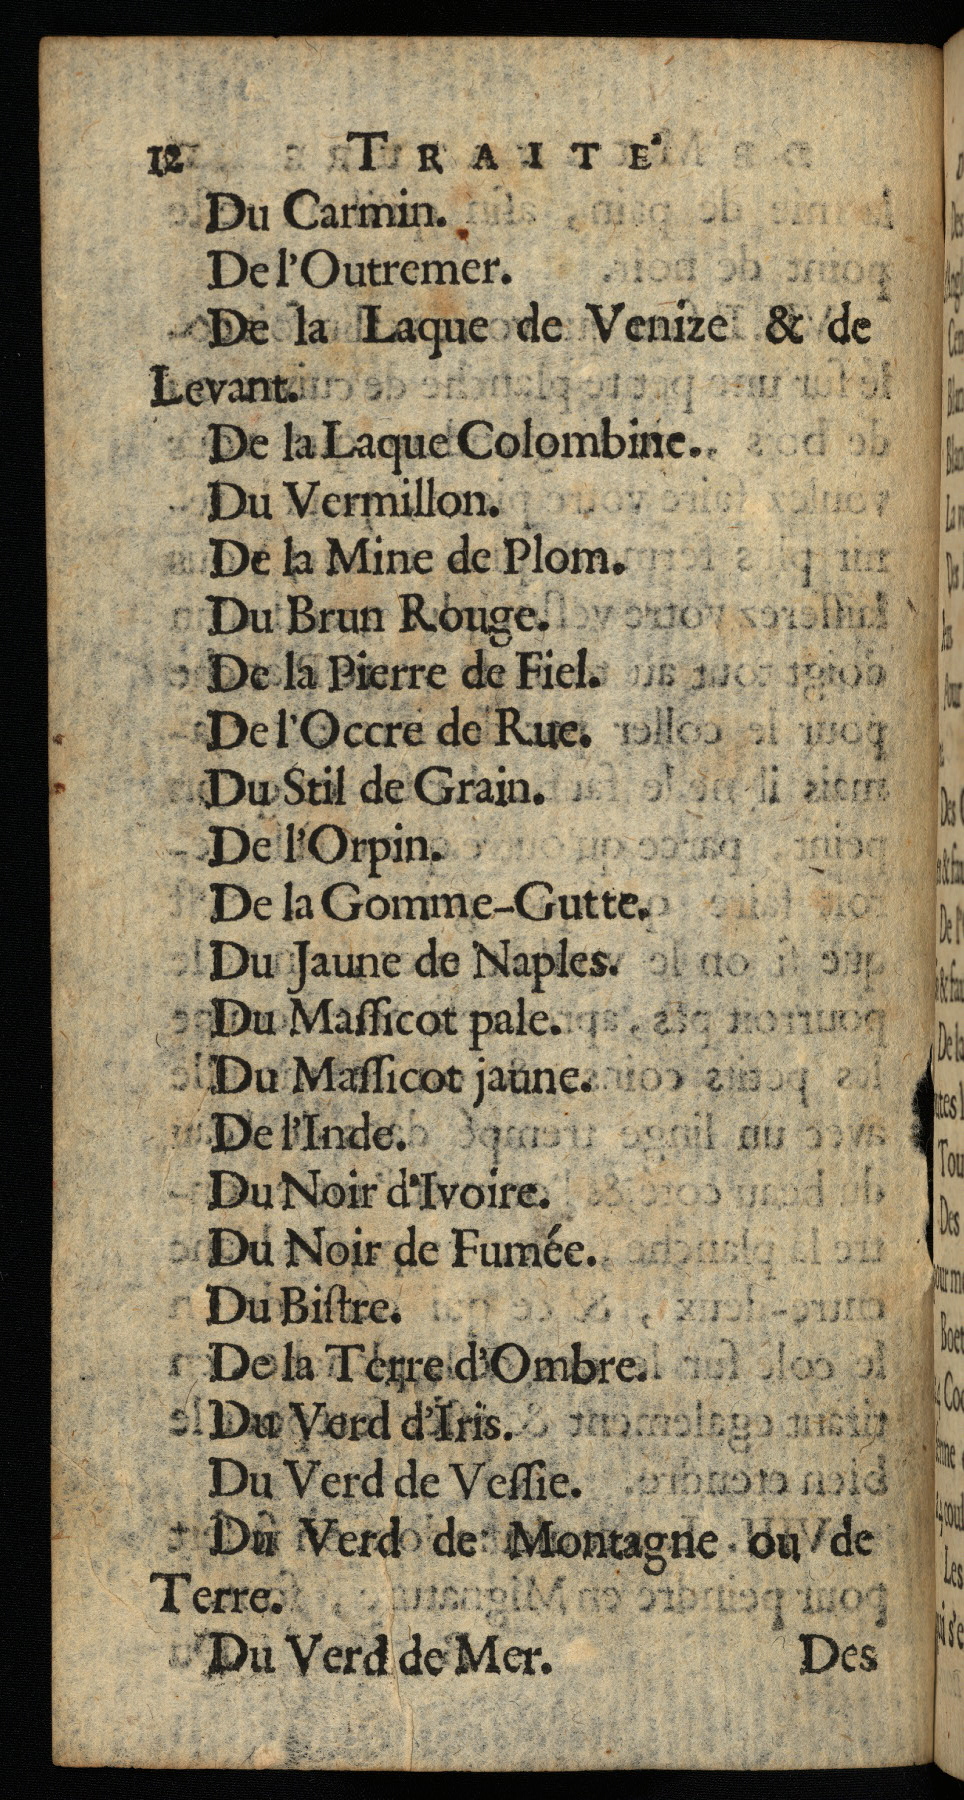 12 TRAITE'
Du Carmin.
De l'Outremer.
De la Laque de Venize & de
Levant.
De la Laque Colombine.
Du Vermillon.
De la Mine de Plom.
Du Brun Rouge.
De la Pierre de Fiel.
De l'Occre de Rue.
Du Stil de Grain.
De l'Orpin.
De la Gomme-Gutte.
Du Jaune de Naples.
Du Maſſicot pale.
Du Maſſicot jaune.
De l'Inde.
Du Noir d'Ivoire.
Du Noir de Fumée.
Du Biſtre.
De la Terre d'Ombre.
Du Verd d'Iris.
Du Verd de Veſſie.
Du Verd de Montagne ou de
Terre.
Du Verd de Mer. Des